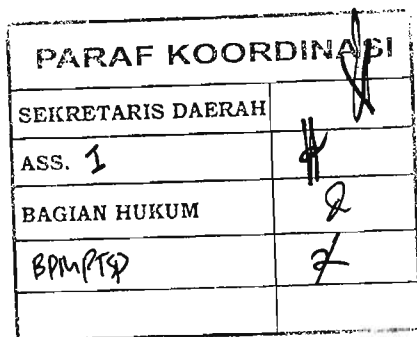 PARAF KOORDINASI
SEKRETARIS DAERAH
ASS. I
BAGIAN HUKUM
BPMPTSP